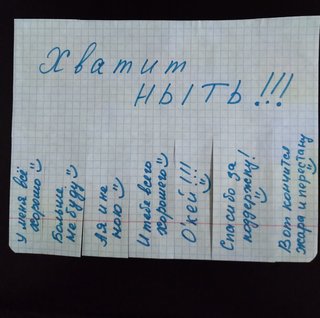 Хватит
ныть!!!
У меня всё
хорошо
Больше
не буду
А я и не
ною
И тебе всего
хорошего
О'кей!!!
Спасибо за
поддержку!
Вот кончится
жара и перестану